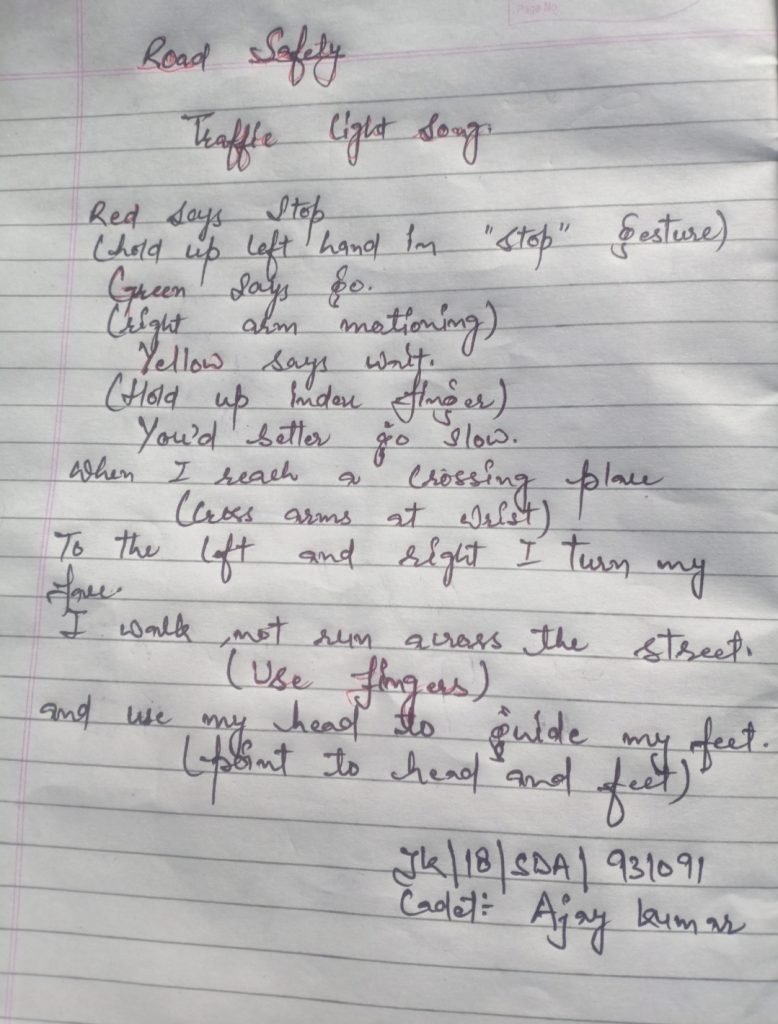 Page No.
Road Safety
Traffic light Song.
Red says Stop
(hold up left hand in "stop" gesture)
Green says go.
(right arm motioning)
Yellow says wait.
(Hold up index finger)
You'd better go slow.
when I reach a crossing place
(Cross arms at wrist)
To the left and right I turn my
face.
I walk, not run across the street.
(Use fingers)
and use my head to guide my feet.
(point to head and feet)
Jk|18|SDA| 931091
Cadet:- Ajay kumar